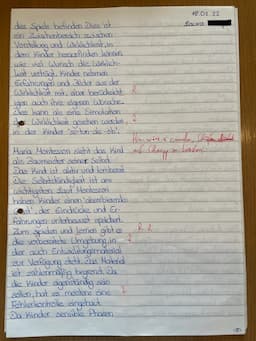 18.01.22
des Spiels befinden. Dies ist
ein Zwischenbereich zwischen
Vorstellung und Wirklichkeit, in
dem Kinder herausfinden können
wie viel Wunsch die Wirklich-
keit verträgt. Kinder nehmen
Erfahrungen und Bilder aus der
Wirklichkeit mit, aber berücksichti
gen auch ihre eigenen Wünsche.
Dies kann als eine Simulation
der Wirklichkeit gesehen werden
in der Kinder "so-tun-als-ob".
Maria Montessori sieht das Kind
als Baumeister seiner Selbst.
Das Kind ist aktiv und lernbereit
Die Selbstständigkeit ist am
wichtigsten. Laut Montessori
haben Kinder einen "absorbierenden
Geist", der Eindrücke und Er-
fahrungen unterbewusst speichert.
Zum Spielen und lernen gibt es
die vorbereitete Umgebung, in
der auch Entwicklungsmaterial
zur Verfügung steht. Das Material
ist zahlenmäßig begrenzt. Da
die Kinder eigenständig sein
sollen, hat es meistens eine
Fehlerkontrolle eingebaut.
Da Kinder sensible Phasen